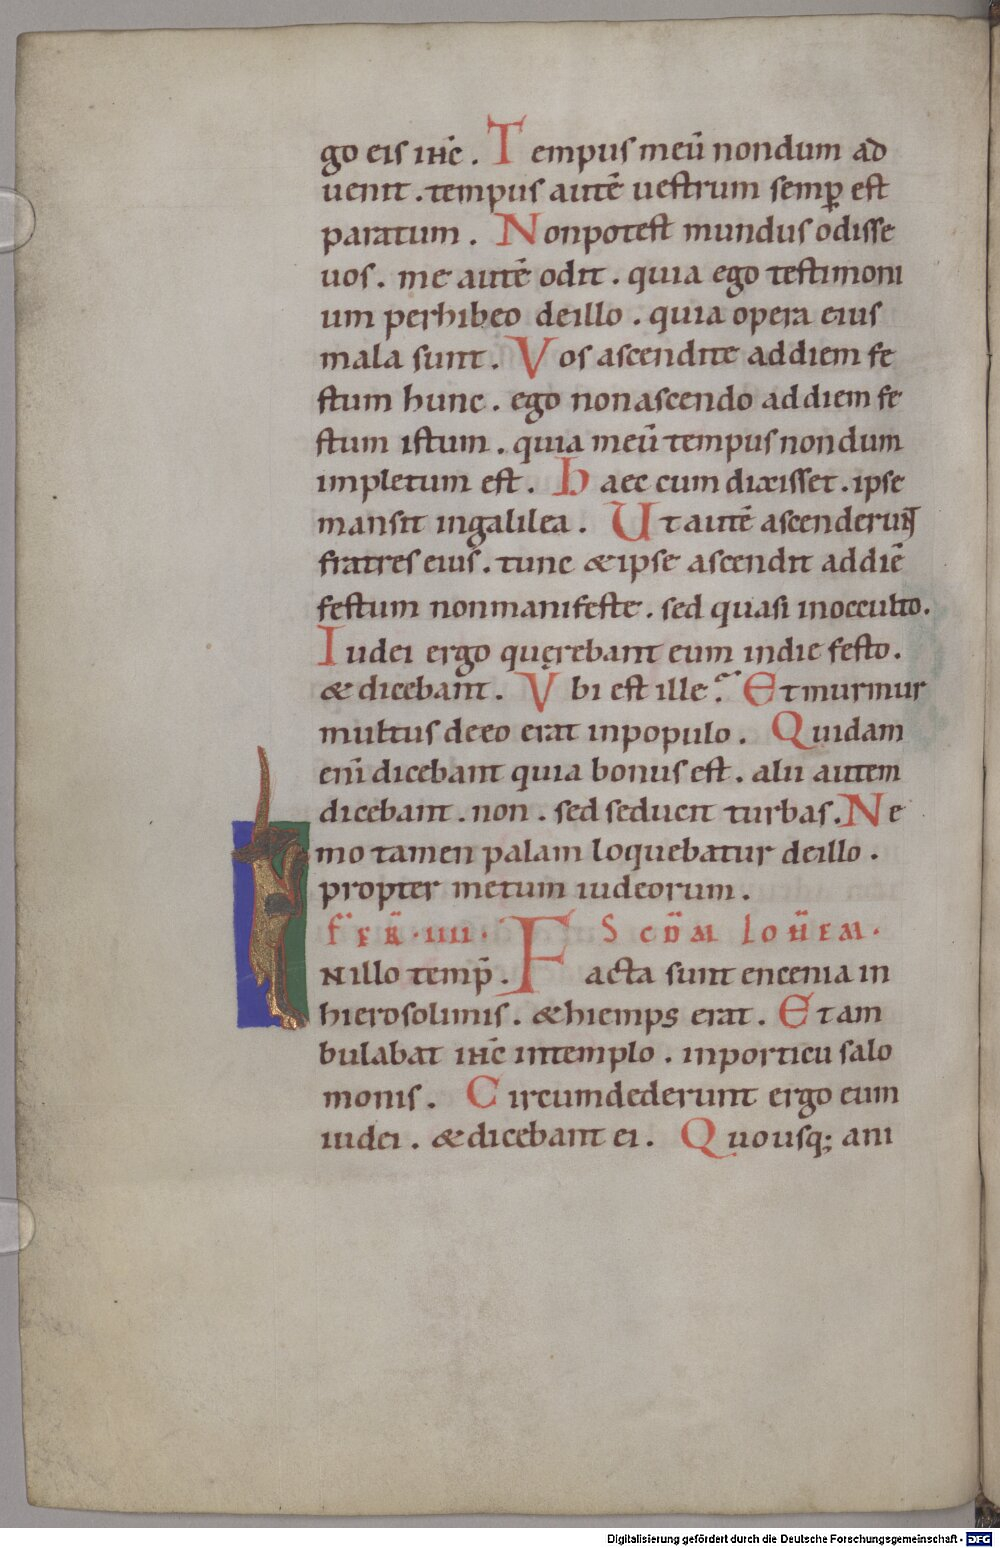 go eis ihc̄ . Tempus meū nondum ad
uenit . tempus autē uestrum semꝑ est
paratum . Nonpotest mundus odisse
uos . me autē odit . quia ego testimoni
um perhibeo deillo . quia opera eius
mala sunt . Vos ascendite addiem fe
stum hunc . ego nonascendo addiem fe
stum istum . quia meū tempus nondum
impletum est . Haec cum dixisset . ipse
mansit ingalilea . Ut autē ascenderunt
fratres eius . tunc & ipse ascendit addiē
festum nonmanifeste . sed quasi inocculto .
Iudei ergo quęrebant eum indie festo .
& dicebant . Vbi est ille ? Et murmur
multus deeo erat inpopulo . Quidam
enī dicebant quia bonus est . alii autem
dicebant . non . sed seducit turbas . Ne
mo tamen palam loquebatur deillo .
propter metum iudeorum .
FER̄ . IIII . SCD̄M IOH̄EM .
INillo temp̄ . Facta sunt encenia in
hierosolimis . & hiemps erat . Et am
bulabat ihc̄ intemplo . inporticu salo
monis . Circumdederunt ergo eum
iudei . & dicebant ei . Quousq; ani
Digitalisierung gefördert durch die Deutsche Forschungsgemeinschaft - DFG